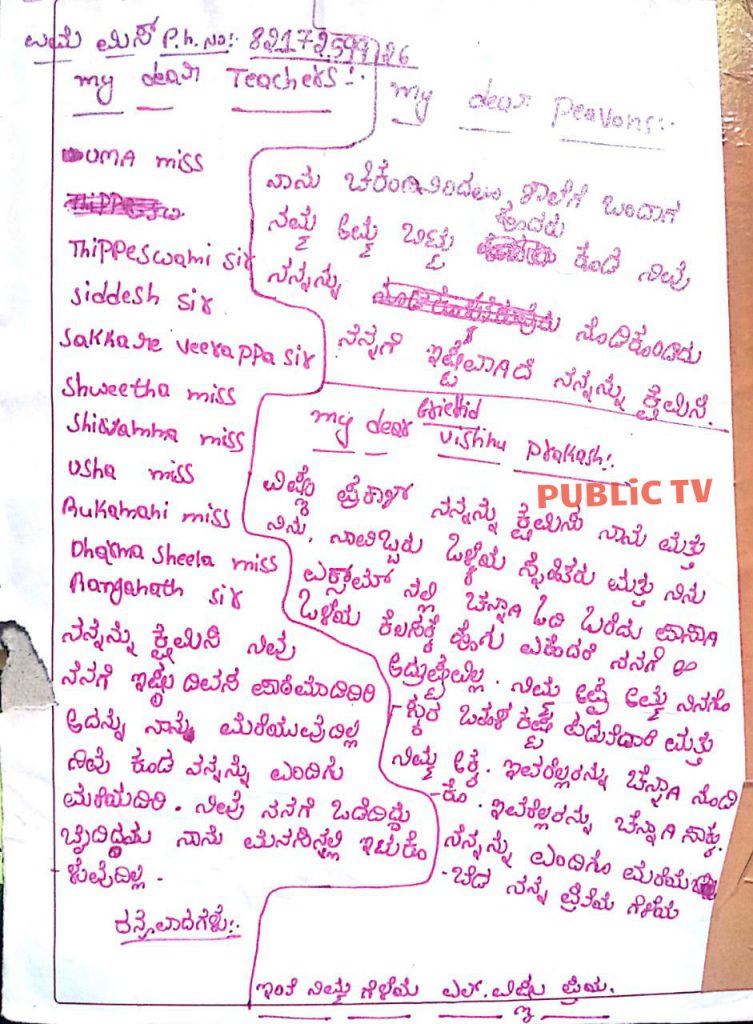 ಉಮೆ ಮಿಸ್ P.h. no:-
my dear Teachers:-
UMA miss
Thippeswami sir
Siddesh sir
Sakkare veerappa sir
Shweetha miss
Shivamma miss
Usha miss
Rukamani miss
Dharma sheela miss
Ranganath sir
ನನ್ನನ್ನು ಕ್ಷೆಮಿಸಿ ನೀವು
ನನಗೆ ಇಷ್ಟು ದಿವಸ ಪಾಠಮಾಡಿದಿರಿ
ಅದನ್ನು ನಾನು ಮರೆಯುವುದಿಲ್ಲ
ನಿವು ಕೂಡ ನನ್ನನ್ನು ಎಂದಿಗು
ಮರೆಯದಿರಿ. ನೀವು ನನಗೆ ಒಡೆದಿದ್ದು
ಬೈದಿದ್ದು ನಾನು ಮನಸಿನ್ನಲ್ಲಿ ಇಟುಕೊ
-ಳುವುದಿಲ್ಲ.
ಧನ್ಯವಾದಗಳು:-
my dear Peavons:-
ನಾನು ಶಾಲೆಗೆ ಬಂದಾಗ
ನಮ್ಮ ಅಮ್ಮ ಬಿಟ್ಟು ಹೊದರು ಕೂಡ ನೀವು
ನನ್ನನ್ನು ನೊಡಿಕೊಂಡಿರು
ನನ್ನಗೆ ಇಷ್ಟವಾಗಿದೆ ನನ್ನನ್ನು ಕ್ಷೆಮಿಸಿ.
my dear Griehid
Vishnu Prakash:-
PUBLiC TV
ವಿಷ್ಣು ಪ್ರಕಾಶ್ ನನ್ನನ್ನು ಕ್ಷೆಮಿಸು ನಾನು ಮತ್ತು
ನಿನು, ನಾವಿಬ್ಬರು ಒಳ್ಳೆಯ ಸ್ನೆಹಿತರು ಮತ್ತು ನಿನು
ಎಕ್ಸಾಮ್ ನಲ್ಲಿ ಚನ್ನಾಗಿ ಓದಿ ಬರೆದು ಪಾಸಾಗಿ
ಒಳೆಯ ಕೆಲಸಕ್ಕೆ ಹೋಗು ಏಕೆಂದರೆ ನನಗೆ ಆ
ಅದ್ರುಷ್ಟವಿಲ್ಲ. ನಿಮ್ಮ ಅಪ್ಪ ಅಮ್ಮ ನಿನಗೊ
-ಸ್ಕರ ಬಹಳ ಕಷ್ಟ ಪಡುತಿದಾರೆ ಮತ್ತು
ನಿಮ್ಮ ಅಕ್ಕ. ಇವರೆಲ್ಲರನ್ನು ಚೆನ್ನಾಗಿ ನೊಡಿ
-ಕೊ. ಇವರೆಲ್ಲರನ್ನು ಚೆನ್ನಾಗಿ ಸಾಕು.
ನನ್ನನ್ನು ಎಂದಿಗೂ ಮರೆಯ
-ಬೆಡ ನನ್ನ ಪ್ರಿತಿಯ ಗೆಳೆಯ
ಇಂತಿ ನಿಮ್ಮ ಗೆಳೆಯ ಎಲ್. ವಿಷ್ಣು ಪ್ರಿಯ.